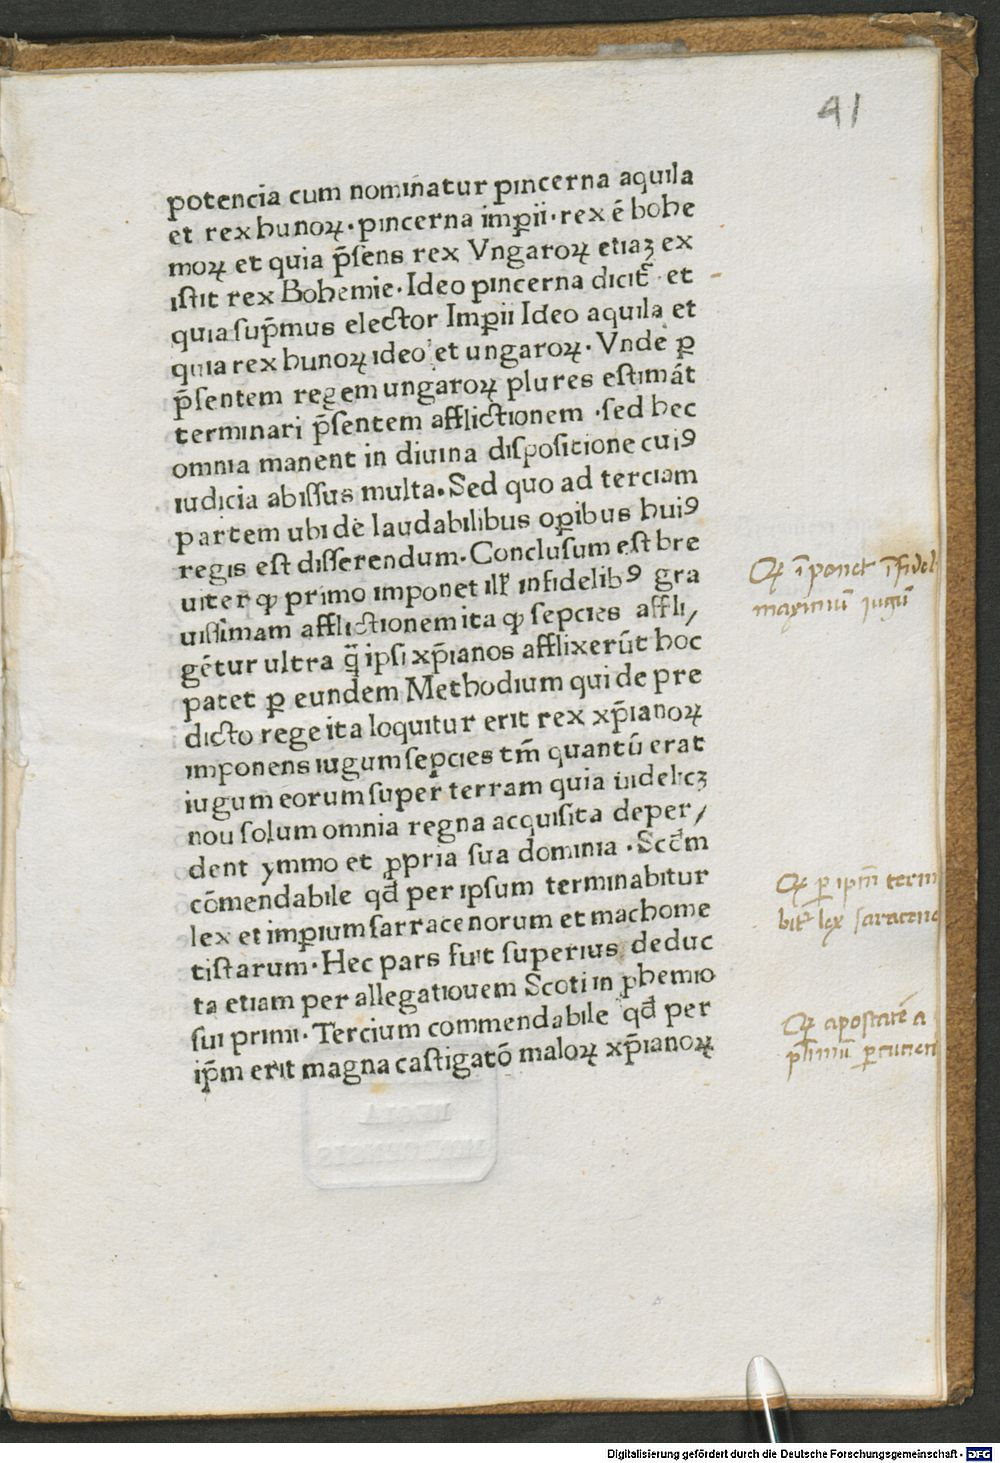 41
potencia cum nominatur pincerna aquila
et rex hunoꝝ · pincerna imꝑii · rex ē bohe
moꝝ et quia p̄sens rex Vngaroꝝ etiaꝫ ex
istit rex Bohemie · Ideo pincerna dicit᷑ · et
quia sup̄mus elector Imꝑii Ideo aquila et
quia rex hunoꝝ ideo et ungaroꝝ · Vnde ꝑ
p̄sentem regem ungaroꝝ plures estimāt
terminari p̄sentem afflictionem · sed hec
omnia manent in diuina dispositione cuiꝰ
iudicia abissus multa. Sed quo ad terciam
partem ubi de laudabilibus oꝑibus huiꝰ
regis est disserendum · Conclusum est bre
uiter ꝙ primo imponet ill᷑ infidelibꝰ gra
uissimam afflictionem ita ꝙ sepcies affli/
gētur ultra q̄ ipsi xp̄ianos afflixerūt hoc
patet ꝑ eundem Methodium qui de pre
dicto rege ita loquitur erit rex xp̄ianoꝝ
imponens iugum sepcies tm̄ quantū erat
iugum eorum super terram quia uidelicꝫ
nou solum omnia regna acquisita deper/
dent ymmo et ꝓpria sua dominia · Scd̄m
cōmendabile qd̄ per ipsum terminabitur
lex et imꝑium sarracenorum et machome
tistarum · Hec pars fuit superius deduc
ta etiam per allegatiouem Scoti in ꝓhemio
sui primi · Tercium commendabile qd̄ per
ip̄m erit magna castigatō maloꝝ xp̄ianoꝝ
Qꝝ īponet īfidel
maximū iugū
Qꝝ ꝑ ipm̄ term
bit᷑ lex saraceno
Qꝝ apostatē a
REGIA
MONACENSIS
Digitalisierung gefördert durch die Deutsche Forschungsgemeinschaft - DFG